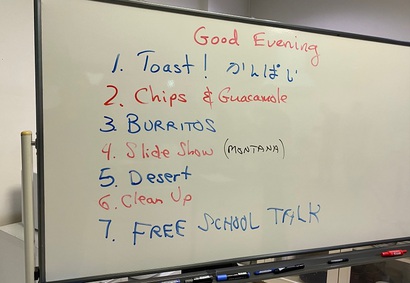 Good Evening
1. Toast! かんぱい
2. Chips & Guacamole
3. BURRITOS
4. Slide Show (MONTANA)
5. Desert
6. Clean Up
7. FREE SCHOOL TALK